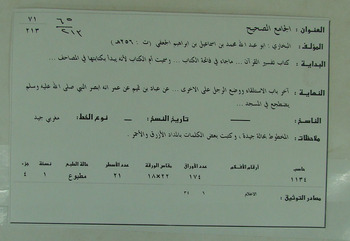 ٧١
٢١٣
٦٥
٢١٣
العنوان : الجامع الصحيح
المؤلف : البخاري : ابو عبد الله محمد بن اسماعيل بن ابراهيم الجعفي (ت : ٢٥٦هـ)
البداية : كتاب تفسير القرآن ... ماجاء في فاتحة الكتاب ... وسميت أم الكتاب لأنه يبدأ بكتابتها في المصاحف ...
النهاية : آخر باب الاستلقاء ووضع الرجل على الاخرى ... عن عباد بن تميم عن عمه انه ابصر النبي صلى الله عليه وسلم
يضطجع في المسجد ...
الناسخ : تاريخ النسخ : نوع الخط : مغربي جيد
ملاحظات : المخطوط بحالة جيدة ، وكتبت بعض الكلمات بالمداد الأزرق والأحمر .
خاص أرقام الأفلام عدد الأوراق مقاس الورقة عدد الأسطر حالة الطبع نسخة جزء
١١٣٤ ١٧٤ ٢٢×١٨ ٢١ مطبوع ١ ٤
مصادر التوثيق : الاعلام ١ ٣٤